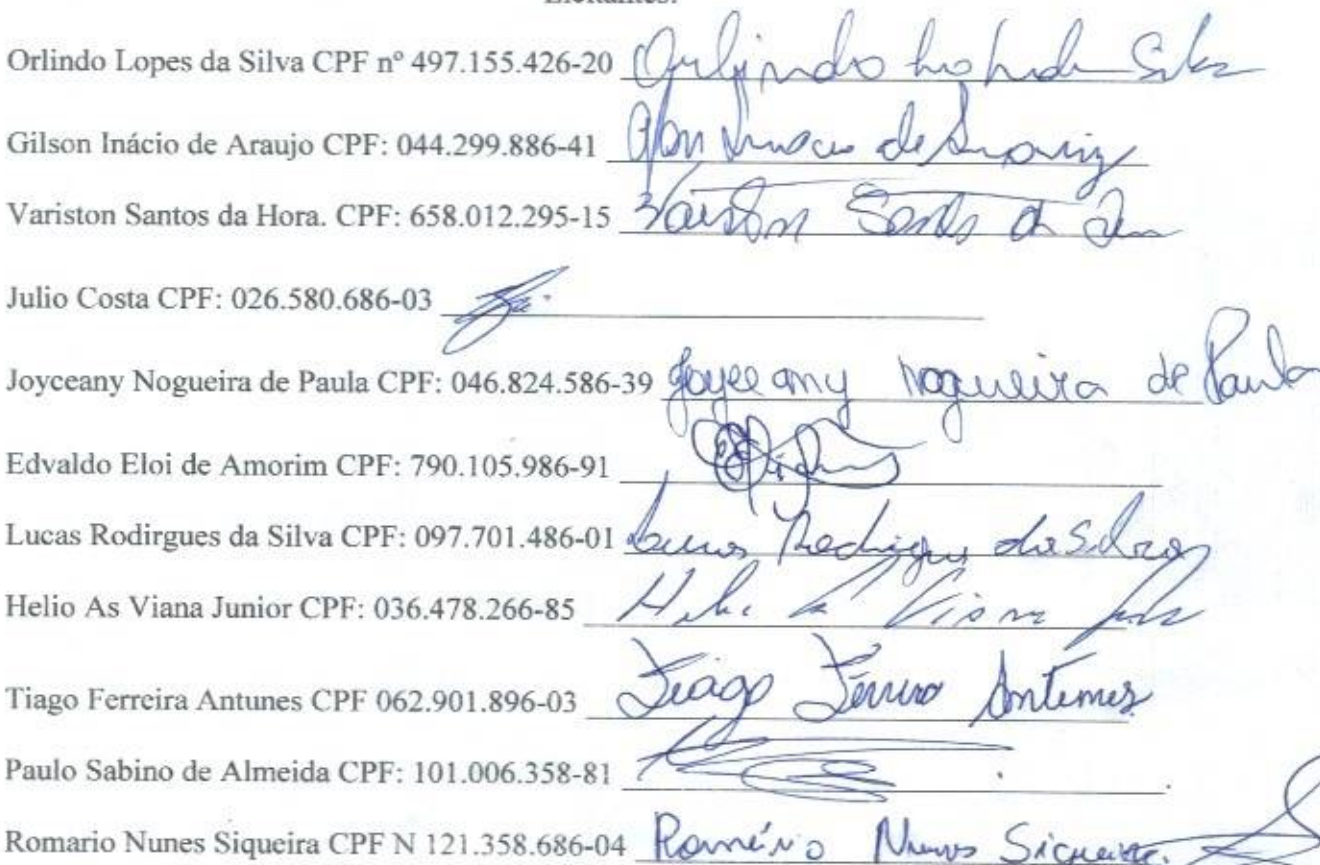 Orlindo Lopes da Silva CPF nº 497.155.426-20
Gilson Inácio de Araujo CPF: 044.299.886-41
Variston Santos da Hora. CPF: 658.012.295-15
Julio Costa CPF: 026.580.686-03
Joyceany Nogueira de Paula CPF: 046.824.586-39 Joyceany Nogueira de Paula
Edvaldo Eloi de Amorim CPF: 790.105.986-91
Lucas Rodirgues da Silva CPF: 097.701.486-01 Lucas Rodrigues da Silva
Helio As Viana Junior CPF: 036.478.266-85
Tiago Ferreira Antunes CPF 062.901.896-03 Tiago Antunes
Paulo Sabino de Almeida CPF: 101.006.358-81
Romario Nunes Siqueira CPF N 121.358.686-04 Romário Nunes Siqueira